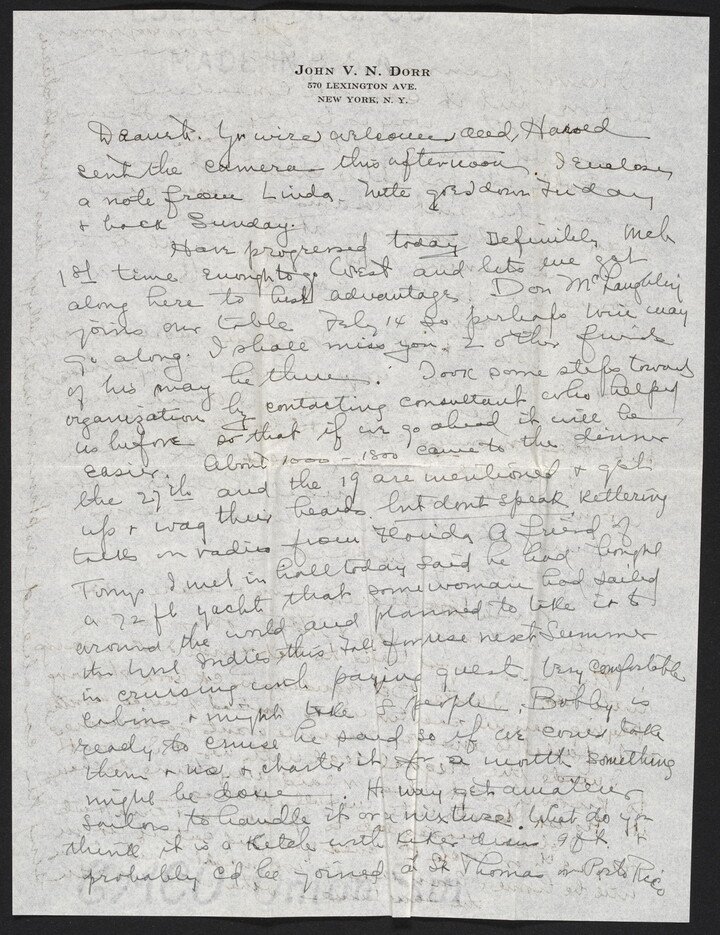 JOHN V. N. DORR
570 LEXINGTON AVE.
NEW YORK, N. Y.
Dearest. Yr wire welcomed, Harold
sent the camera this afternoon. I enclose
a note from Linda, Nette goes down Friday
+ back Sunday.
Have progressed today Definitely Meh
1st time enough to go West and lets we get
along here to best advantage. Don McLaughlin
joins our table Feby 14 so perhaps wire may
go along. I shall miss you. 2 other friends
of his may be there. Took some steps toward
organization by contacting consultant who helped
us before so that if we go ahead it will be
easier. About 1000 - 1800 came to the dinner
the 27th and the 19 are mentioned + get
up + wag their heads but dont speak, Kettering
talks on radio from Florida A friend of
Tomp I met in hall today said he had bought
a 72 ft yacht that some woman had sailed
around the world and planned to take it to
the West Indies this Fall for use next Summer
in cruising with paying guest. Very comfortable
cabins + might take 8 people. Bobby is
ready to cruise he said so if we could take
them + us + charter it for a month something
might be done. He may get amateur
sailors to handle it or a mixture. What do you
think it is a Ketch with 9 ft +
probably c'd be joined at St Thomas or Porto Rico